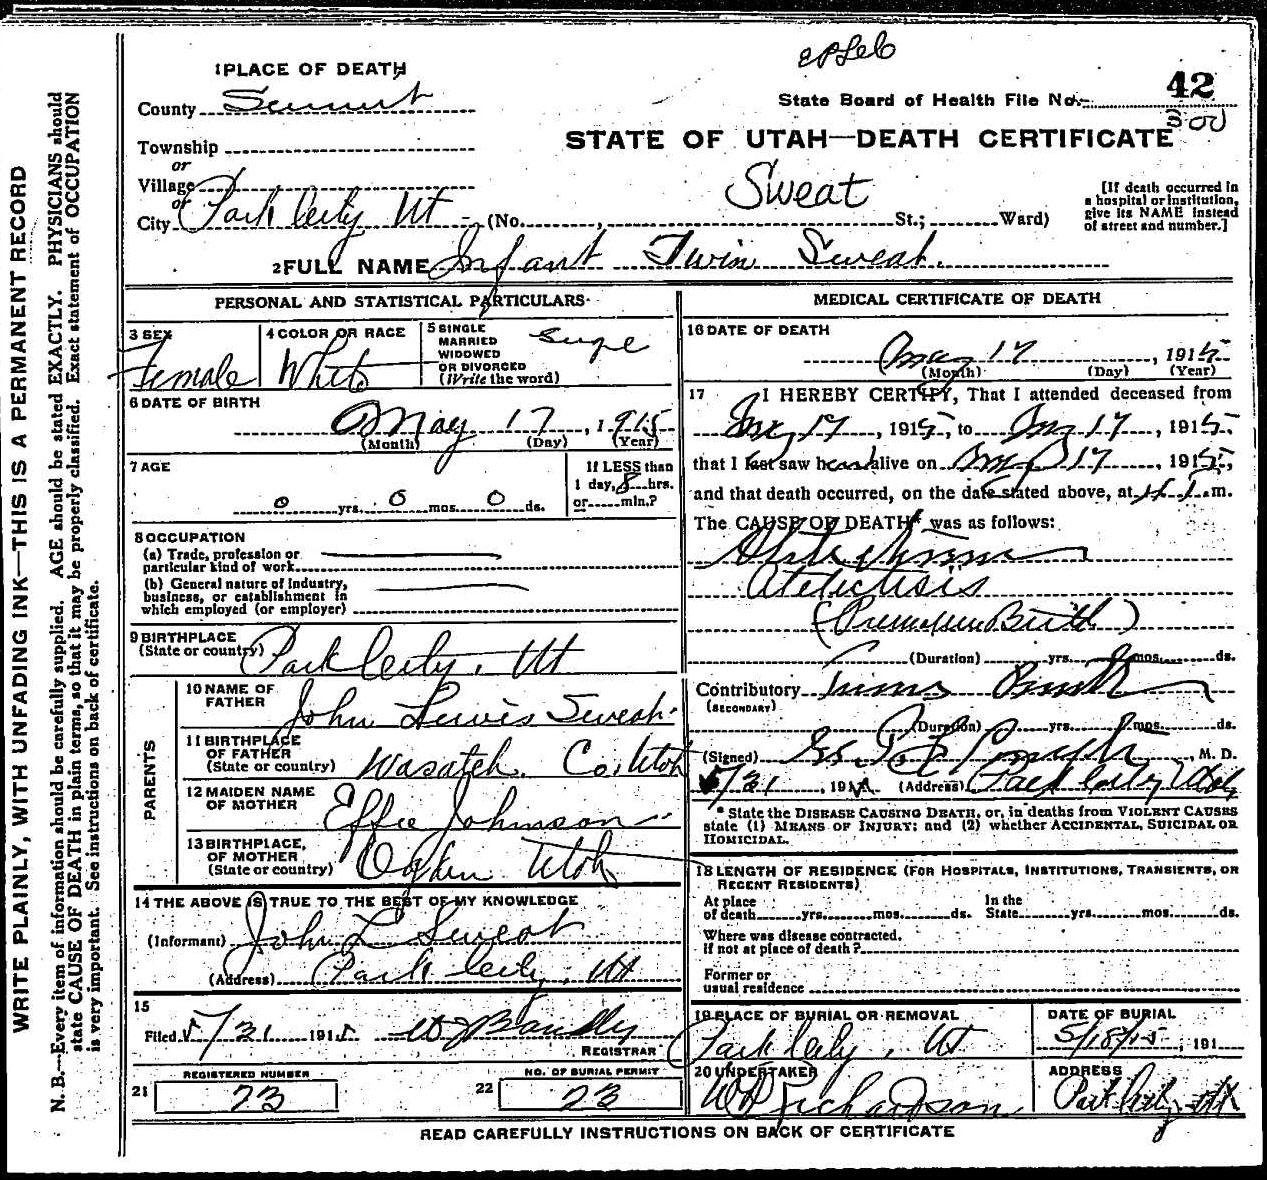 1 PLACE OF DEATH
42
State Board of Health File No.
County Summit
STATE OF UTAH—DEATH CERTIFICATE
Township
or
Village
or
City Park City Ut (No. St.; Ward)
Sweat
[If death occurred in
a hospital or institution,
give its NAME instead
of street and number.]
2 FULL NAME Infant Twin Sweat.
PERSONAL AND STATISTICAL PARTICULARS
3 SEX
Female
4 COLOR OR RACE
White
5 SINGLE
MARRIED
WIDOWED
OR DIVORCED
(Write the word)
6 DATE OF BIRTH
May 17, 1915
(Month) (Day) (Year)
7 AGE
0 yrs. 0 mos. 0 ds.
If LESS than
1 day, 8 hrs.
or min.?
8 OCCUPATION
(a) Trade, profession or
particular kind of work
(b) General nature of industry,
business, or establishment in
which employed (or employer)
9 BIRTHPLACE
(State or country) Park City, Ut
PARENTS
10 NAME OF
FATHER John Lewis Sweat
11 BIRTHPLACE
OF FATHER
(State or country) Wasatch Co, Utah
12 MAIDEN NAME
OF MOTHER Effie Johnson
13 BIRTHPLACE,
OF MOTHER
(State or country) Ogden Utah
14 THE ABOVE IS TRUE TO THE BEST OF MY KNOWLEDGE
(Informant) John L Sweat
(Address) Park City, Ut
15
Filed 5/21 1915
REGISTRAR
21 REGISTERED NUMBER
23
22 NO. OF BURIAL PERMIT
23
MEDICAL CERTIFICATE OF DEATH
16 DATE OF DEATH
May 17, 1915
(Month) (Day) (Year)
17 I HEREBY CERTIFY, That I attended deceased from
17, 1915, to 17, 1915.
that I last saw h alive on 17, 1915,
and that death occurred, on the date stated above, at m.
The CAUSE OF DEATH* was as follows:
Atelictisis
(Premature Birth)
(Duration) yrs. mos. ds.
Contributory Birth
(SECONDARY)
(Duration) yrs. mos. ds.
(Signed) M. D.
5/21, 191 (Address) Park City Utah
* State the DISEASE CAUSING DEATH, or, in deaths from VIOLENT CAUSES
state (1) MEANS OF INJURY; and (2) whether ACCIDENTAL, SUICIDAL OR
HOMICIDAL.
18 LENGTH OF RESIDENCE (FOR HOSPITALS, INSTITUTIONS, TRANSIENTS, OR
RECENT RESIDENTS)
At place In the
of death yrs. mos. ds. State yrs. mos. ds.
Where was disease contracted.
if not at place of death?
Former or
usual residence
19 PLACE OF BURIAL OR REMOVAL
Park City, Ut
DATE OF BURIAL
5/18/15, 191
20 UNDERTAKER
Richardson
ADDRESS
Park City Ut
READ CAREFULLY INSTRUCTIONS ON BACK OF CERTIFICATE
WRITE PLAINLY, WITH UNFADING INK—THIS IS A PERMANENT RECORD
N. B.—Every item of information should be carefully supplied. AGE should be stated EXACTLY. PHYSICIANS should
state CAUSE OF DEATH in plain terms, so that it may be properly classified. Exact statement of OCCUPATION
is very important. See instructions on back of certificate.